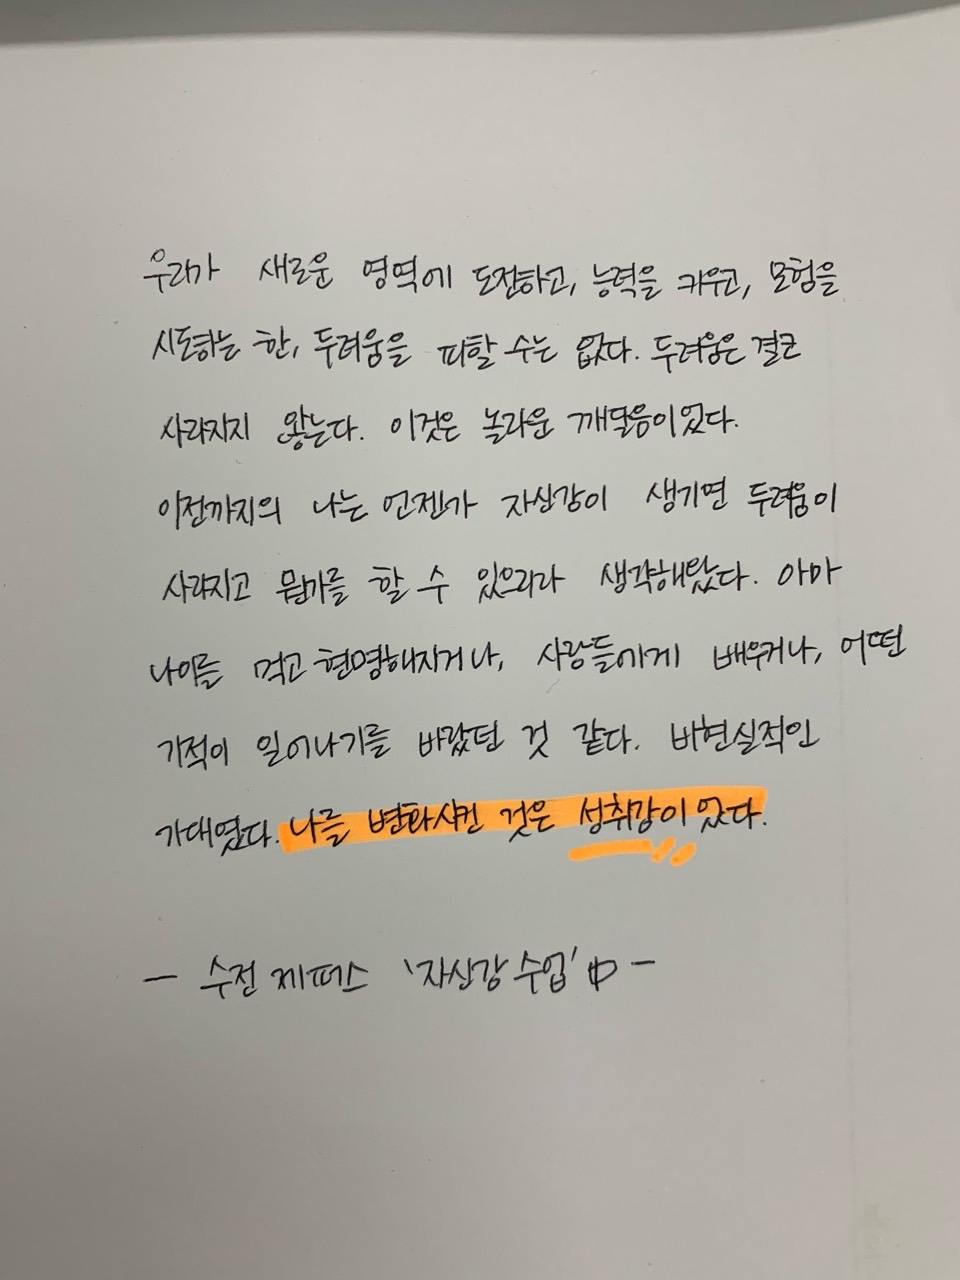 우리가 새로운 영역에 도전하고, 능력을 키우고, 모험을
시도하는 한, 두려움을 피할 수는 없다. 두려움은 결코
사라지지 않는다. 이것은 놀라운 깨달음이었다.
이전까지의 나는 언젠가 자신감이 생기면 두려움이
사라지고 뭔가를 할 수 있으리라 생각해왔다. 아마
나이를 먹고 현명해지거나, 사람들에게 배우거나, 어떤
기적이 일어나기를 바랐던 것 같다. 비현실적인
기대였다. 나를 변화시킨 것은 성취감이었다.
- 수전 제퍼스 '자신감 수업' 中 -